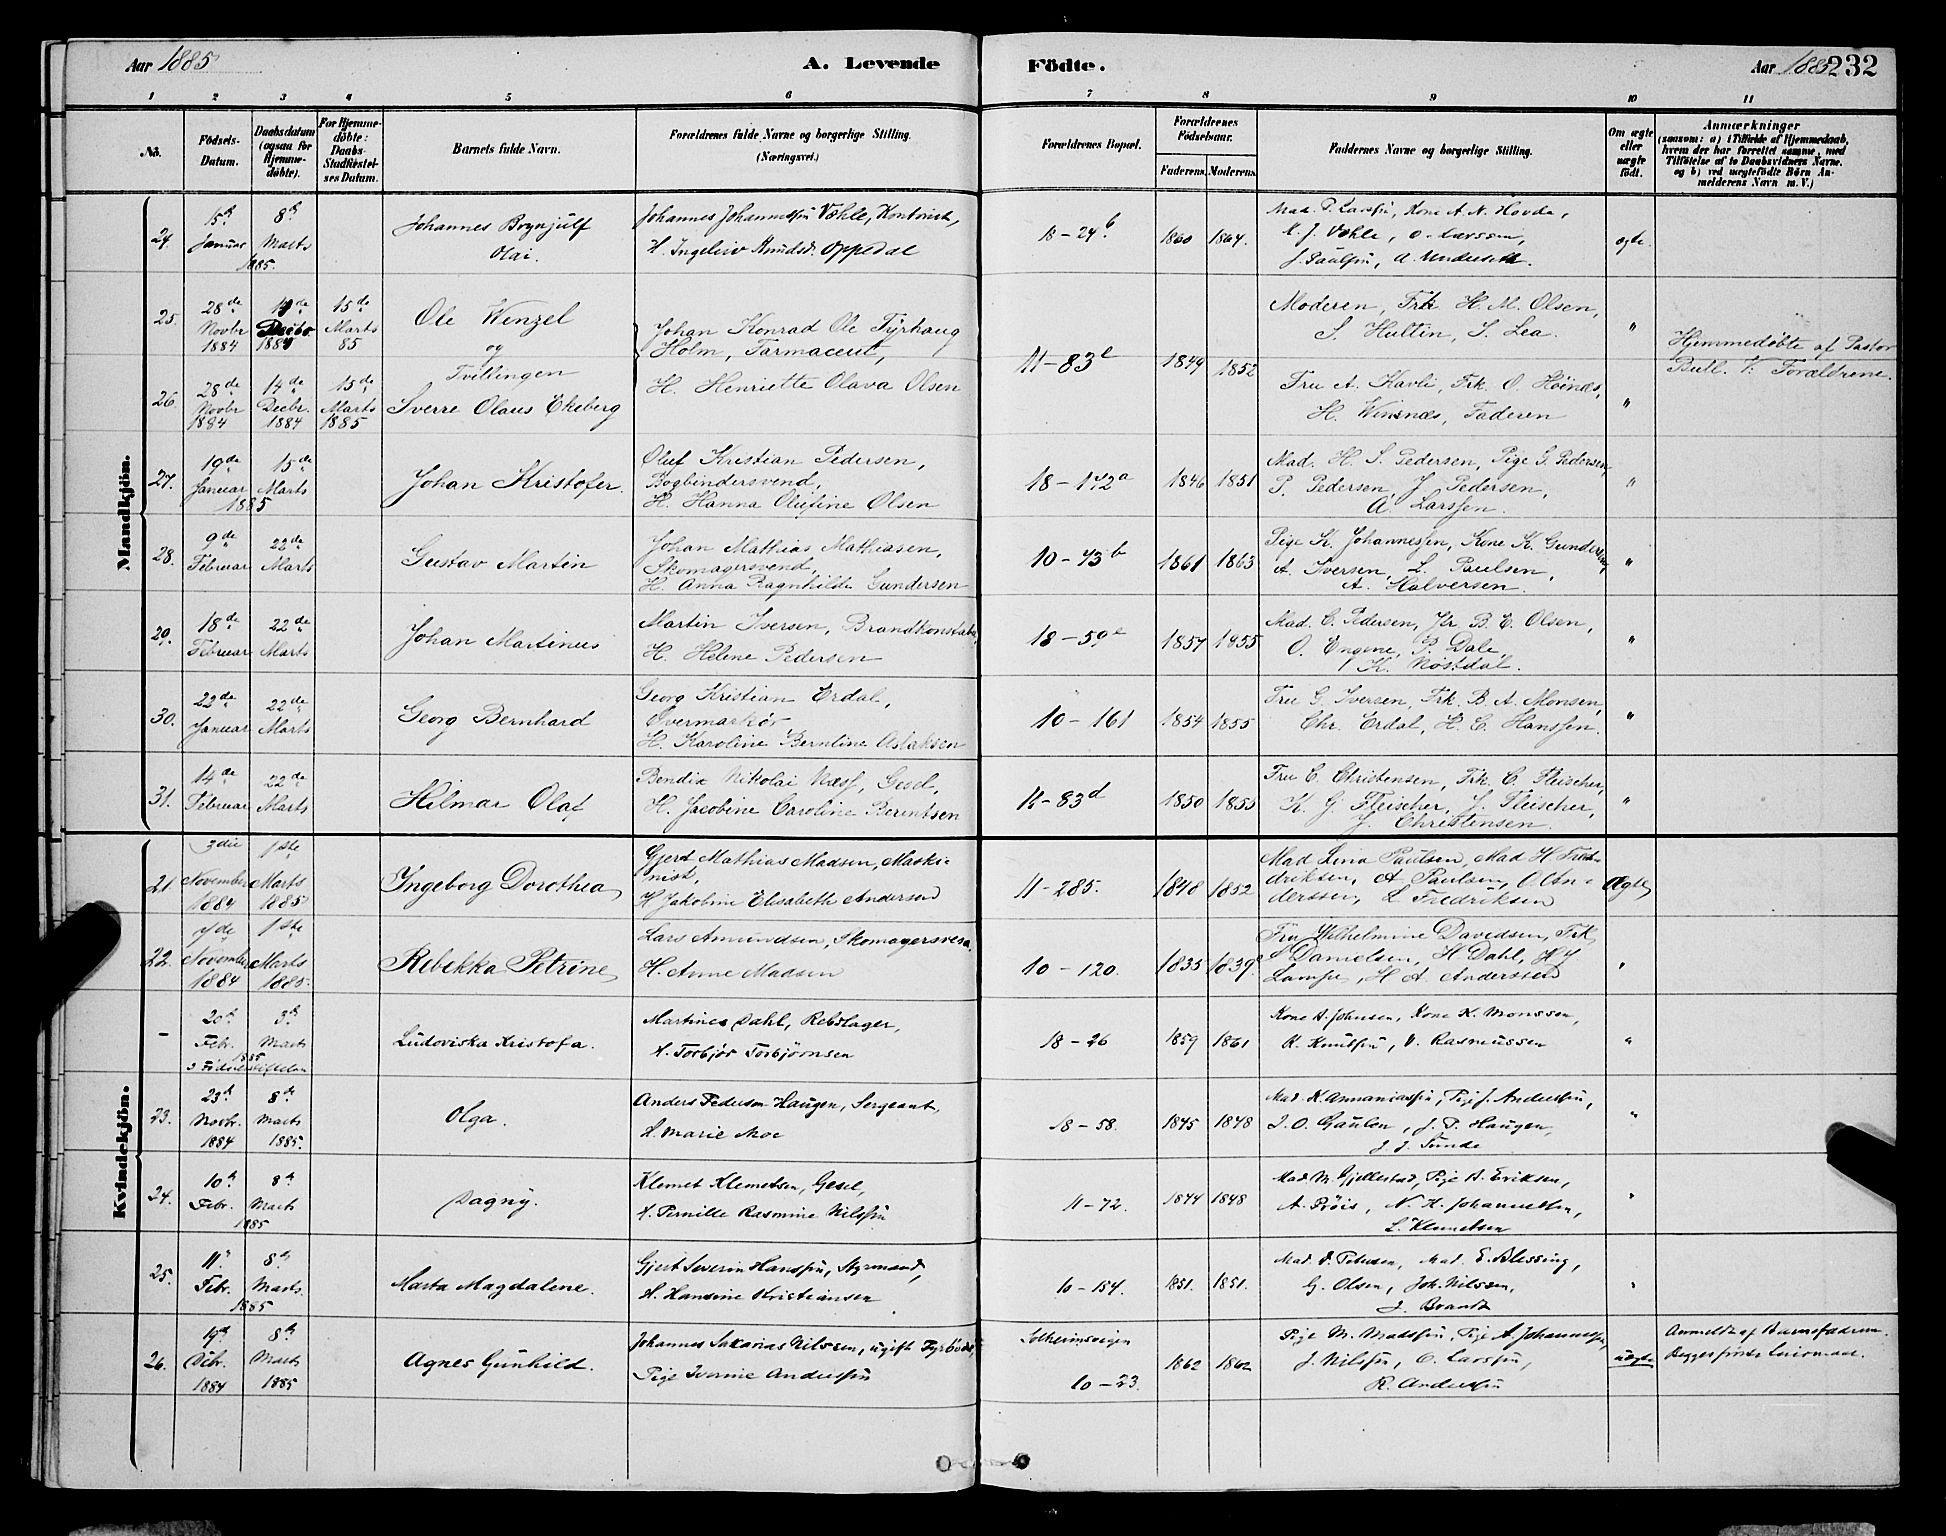 Aar 1885
A. Levende
Födte.
Aar 1885
232
1 2 3 4 5 6 7 8 9 10 11
No.
Födsels-
Datum.
Daabsdatum
(ogsaa for
Hjemme-
döbte).
For Hjemme-
döbte:
Daabs-
Stadfæstel-
ses Datum.
Barnets fulde Navn.
Forældrenes fulde Navne og borgerlige Stilling.
(Næringsvei.)
Forældrenes Bopæl.
Forældrenes
Födselsaar.
Faderens. Moderens.
Faddernes Navne og borgerlige Stilling.
Om ægte
eller
uægte
födt.
Anmærkninger
(saasom: a) i Tilfælde af Hjemmedaab,
hvem der har forrettet samme, med
Tilföielse af to Daabsvidners Navne.
og b) ved uægtefödte Börn An-
melderens Navn m. V.)
Mandkjön.
24.
Januar
8de
Marts
1885.
Johannes Brynjulf
Olai.
Johannes Væhle, Kontorist,
H. Ingeleiv Knudsd. Oppedal
18-24b
1860 1864.
K. J. Væhle, O. Larssen,
ægte.
25.
28de
Novbr
1884
1884
15de
Marts
85
Ole Wenzel
og
Tvillingen
Johan Konrad Ole Tyrhaug
Holm, Farmaceut,
H. Henriette Olava Olsen
11-83e
1849 1852
Moderen, Frk H. M. Olsen,
S. Hultin, S. Lea.
"
Hjemmedöbte af Pastor
Butl. V. Forældrene.
26.
28de
Novbr
1884
14de
Decbr.
1884
15de
Marts
1885
Sverre Olaus Ekeberg
Fru A. Kavli, Frk. O. Höinæs,
H. Winsnæs, Faderen
"
27.
19de
Januar
15de
Marts
1885
Johan Kristofer.
Oluf Kristian Pedersen,
Bogbindersvend,
H. Hanna Olufine Olsen
18-172a
1846 1851
Mad. H. S. Pedersen, Pige G. Pedersen
P. Pedersen, J. Pedersen,
A. Larssen.
"
28.
9de
Februar
22de
Marts
Gustav Martin
Johan Mathias Mathiasen,
Skomagersvend,
H. Anna Ragnhilda Gundersen
10-73b
1861 1863
Pige K. Johannessen, Kone K. Gundersen,
A. Iversen, L. Paulsen,
A. Halversen.
"
29.
18de
Februar
22de
Marts
Johan Martinus
Martin Iversen, Brandkonstabel
H. Helene Pedersen
18-59e
1857 1855
Mad. C. Pedersen, Hr. B. E. Olsen,
O. Engene, P. Dale,
K. Nöstdal.
"
30.
22de
Januar
22de
Marts
Georg Bernhard
Georg Kristian Erdal,
Overmarkör
H. Karoline Berntine Aslaksen
10-161
1854 1855
Fru G. Iversen, Frk. B. A. Monsen,
Chr. Erdal, H. C. Hanssen.
"
31.
14de
Februar
22de
Marts
Hilmar Olaf
Bendix Nikolai Næss, Gesel,
H. Jacobine Caroline Berentsen
11-83d
1850 1855
Fru C. Christensen, Frk. C. Fleischer,
K. G. Fleischer, J. Fleischer,
J. Christensen.
"
Kvindekjön.
21.
3die
November
1884
1ste
Marts
1885
Ingeborg Dorothea
Gjert Mathias Madsen, Maski-
nist,
H. Jakobine Elisabeth Andersen
11-285.
1848 1852
Mad Lina Paulsen, Mad H Fred-
driksen, A Paulsen, O. An-
derssen, L Fredriksen
Ægte
22.
7de
November
1884
1ste
Marts
1885.
Rebekka Petrine
Lars Amundsen, Skomagersvend
H. Anne Madsen
10-120.
1835 1839.
Fru Wilhelmine Davidsen, Frk
S Danielsen, H Dahl,
H A. Anderssen
"
20de
Febr.
3de
Marts
1885
Födselsstiftelsen
Ludoviska Kristofa.
Martines Dahl, Rebslager,
H. Torbjør Torbjørnsen
18-26
1859 1861
Kone A. Johnsen, Kone K. Monssen,
V. Rasmussen
"
23.
23de
Novbr.
1884
8de
Marts
1885.
Olga.
Anders Pedersen Haugen, Sergeant,
H. Marie Moe
18-58.
1845 1848
J. O. Gaulen, J. P. Haugen,
J. J. Tunde
"
24.
10de
Febr.
8de
Marts
1885
Dagny.
Klemet Klemetsen, Gesel,
H. Pernille Rasmine Nilssen
11-72.
1844 1848
Mad. M. Gjellestad, Pige A. Eriksen,
A. Pröis, N. H. Johannessen,
L. Klemetsen
"
25.
11.
Febr.
8de
Marts.
1885
Marta Magdalene.
Gjert Severin Hanssen, Styrmand,
H. Hansine Kristiansen
10-154.
1851. 1851.
Mad. O. Petersen, Mad. E. Blessing,
G. Olsen, Joh. Nilssen,
J. Brandt
"
26.
1884
8de
Marts
1885
Agnes Gunhild.
Johannes Sakarias Nilssen, ugift Fyrböder
Pige Iverine Anderssen
Solheimsveien
10-23.
1862 1862
Pige M. Madssen, Pige A. Johannessen,
J. Nilssen, C. Larssen,
R. Anderssen
uægte
Anmeldt af Barnefaderen.